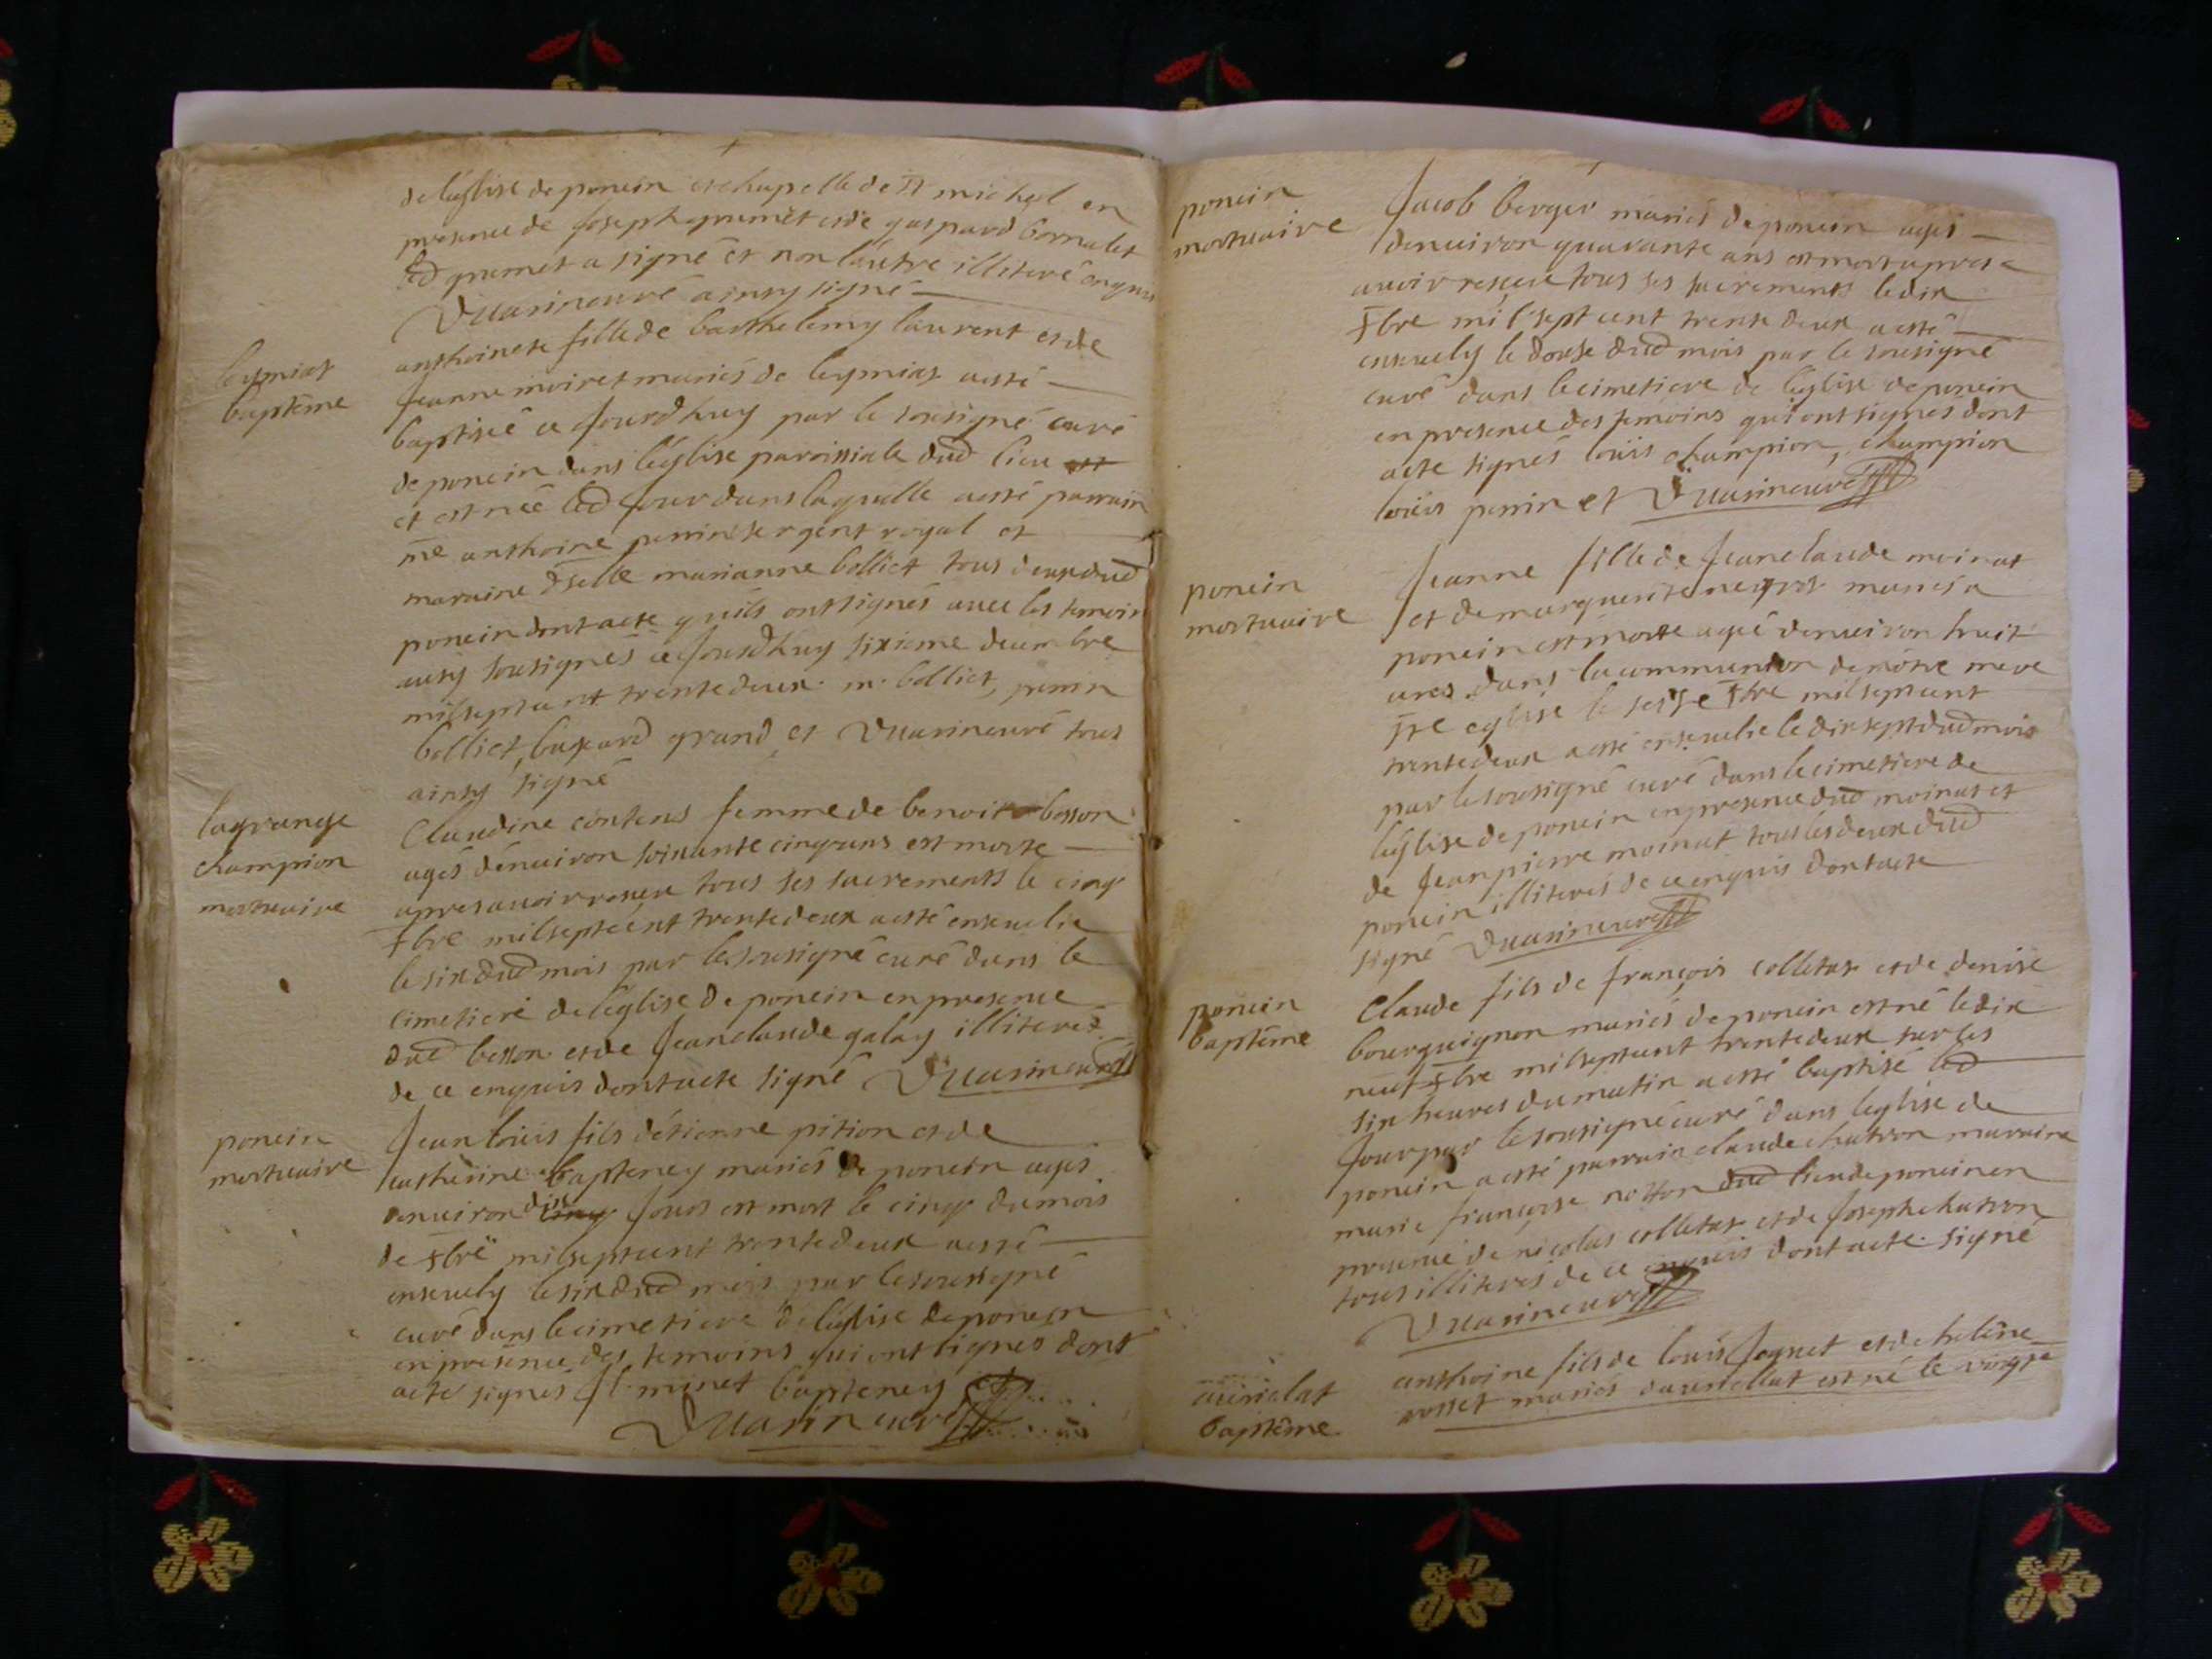 de l'église de poncin et chapelle de st michel en
presence de Joseph grumet et de gaspard bornalet
led grumet a signé et non l'autre illiteré enquis
Duarin curé ainsy signé
leymiat
baptême
anthoinete fille de barthelemy laurent et de
Jeanne moiret mariés de leymiat a esté
baptisée ce Jourdhuy par le sousigné curé
de poncin dans l'eglise paroissiale dud lieu
et est née led Jour dans laquelle a esté parrain
me anthoine perrin sergent royal et
maraine dselle marianne bolliet tous deux dud
poncin dont acte qu'ils ont signés avec les temoins
ausy sousignés ce Jourdhuy sixieme decembre
mil sept cent trente deux. m. bolliet, perrin
bolliet, bugard grand, et Duarin curé tous
ainsy signé
lagrange
champion
mortuaire
Claudine contens femme de benoit besson
agés denuiron soixante cinq ans est morte
apres auoir receu tous ses sacrements le cinq
xbre mil sept cent trente deux a esté enseuelie
le six dud mois par le sousigné curé dans le
cimetiere de l'eglise de poncin en presence
dud besson et de Jeanclaude galay illiteres
de ce enquis dont acte signé Duarin curé
poncin
mortuaire
Jean louis fils détienne pition et de
catherine bapteney mariés de poncin agés
denuiron dix cinq Jours est mort le cinq du mois
de xbre mil sept cent trente deux a esté
enseuely le six dud mois par le soussigné
curé dans le cimetiere de l'église de poncin
en presence des temoins qui ont signés dont
acte signés Jl minet bapteney et
Duarin curé
poncin
mortuaire
Jacob berger mariés de poncin agés
denuiron quarante ans est mort apres
auoir resceu tous ses sacrements le dix
xbre mil sept cent trente deux a esté
enseuely le douse dud mois par le sousigné
curé dans le cimetiere de l'eglise de poncin
en presence des temoins qui ont signés dont
acte signés loüis champion, champion
loüis perrin et Duarin curé
poncin
mortuaire
Jeanne fille de Jeanclaude moinat
et de marguerite mariés a
poncin est morte agée denuiron huit
ans dans la communion de nôtre mere
ste eglise le seise xbre mil sept cent
trente deux a esté enseuelie le dix sept dud mois
par le sousigné curé dans le cimetiere de
l'église de poncin en presence dud moinat et
de Jean pierre moinat tous les deux dud
poncin illiterés de ce enquis dont acte
signé Duarin curé
poncin
baptême
Claude fils de françois colletar et de denise
bourguignon mariés de poncin est né le dix
neuf xbre mil sept cent trente deux sur les
six heures du matin a esté baptisé led
Jour par le sousigné curé dans leglise de
poncin a esté parrain claude chatron maraine
marie françoise notton dud lieu de poncin en
presence de nicolas colletar et de Joseph chatron
tous illiterés de ce enquis dont acte signé
Duarin curé
auirielat
baptême
anthoine fils de louis Joguet et de heleine
rosset mariés est né le vingt